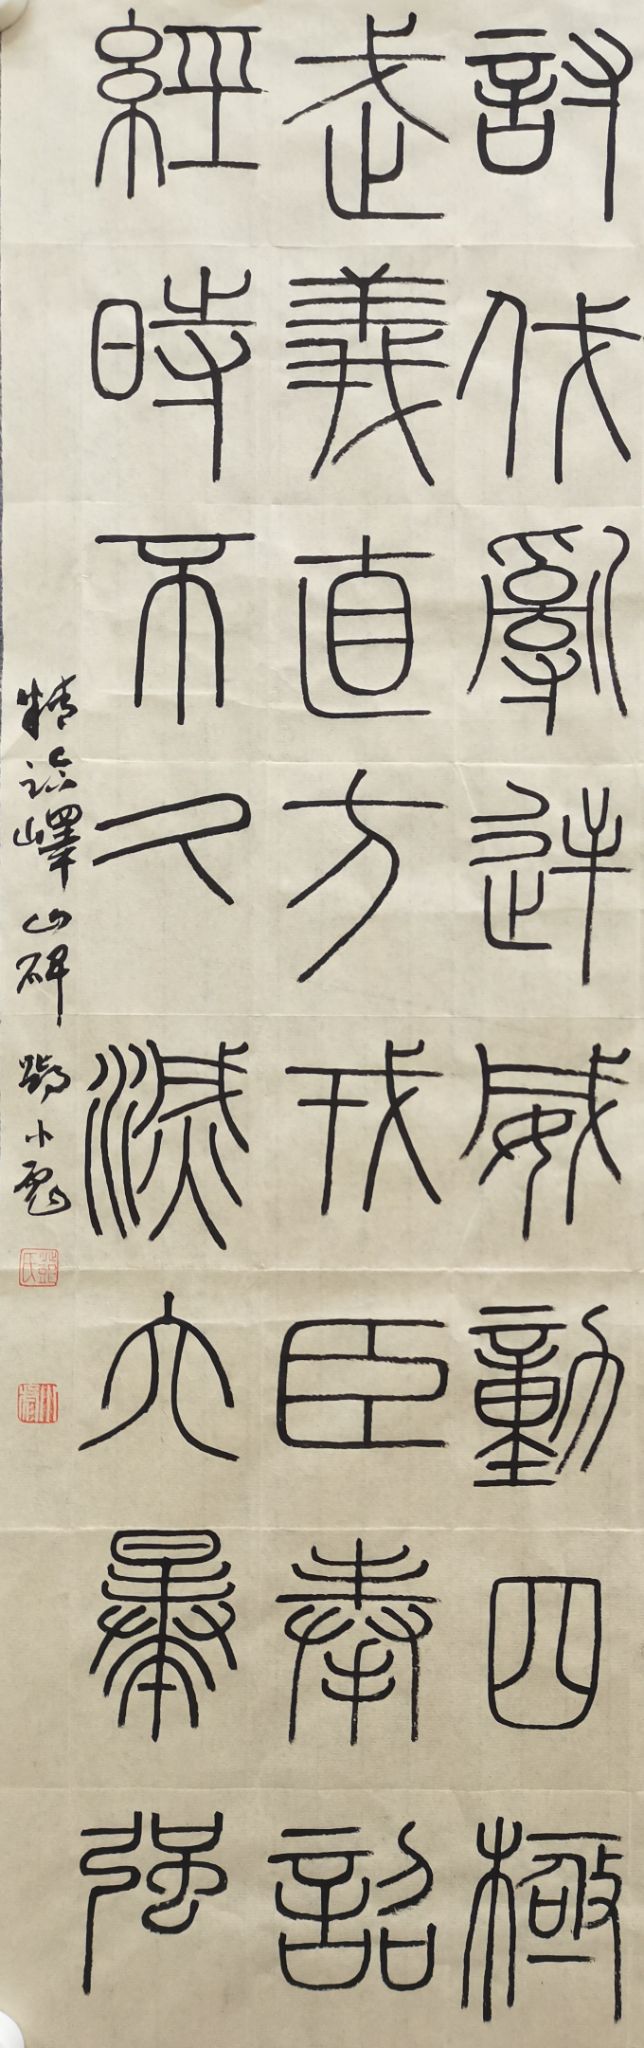 討伐亂逆威動四極
武義直方戎臣奉詔
經時不久滅六暴強
精臨嶧山碑 鄧小冕
鄧氏